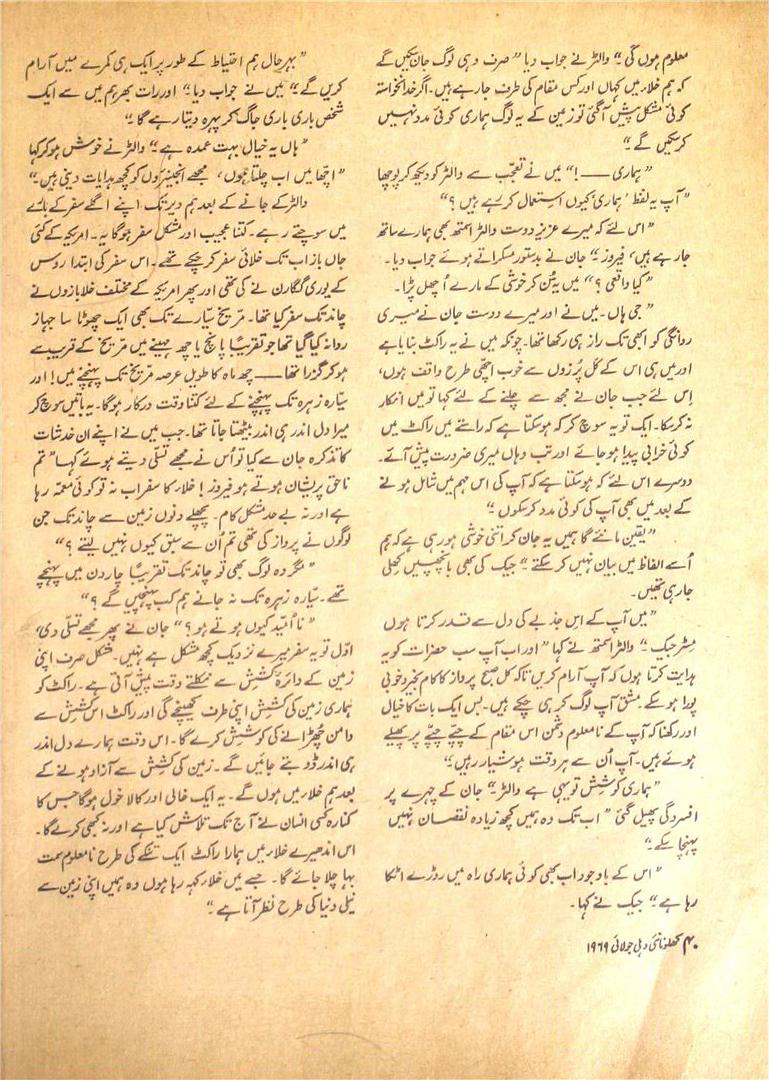 معلوم ہوں گی۔" والٹر نے جواب دیا "صرف وہی لوگ جان سکیں گے
کہ ہم خلاء میں کہاں اور کس مقام کی طرف جا رہے ہیں۔ اگر خدانخواستہ
کوئی مشکل پیش آگئی تو زمین کے یہ لوگ ہماری کوئی مدد نہیں
کر سکیں گے۔"
"ہماری ——!" میں نے تعجب سے والٹر کو دیکھ کر پوچھا
"آپ یہ لفظ 'ہماری' کیوں استعمال کر رہے ہیں؟"
"اس لئے کہ میرے عزیز دوست والٹر اسمتھ بھی ہمارے ساتھ
جا رہے ہیں، فیروز۔" جان نے بدستور مسکراتے ہوئے جواب دیا۔
"کیا واقعی؟" میں یہ سُن کر خوشی کے مارے اُچھل پڑا۔
"جی ہاں۔ میں نے اور میرے دوست جان نے میری
روانگی کو ابھی تک راز ہی رکھا تھا۔ چونکہ میں نے یہ راکٹ بنایا ہے
اور میں ہی اس کے کل پُرزوں سے خوب اچھی طرح واقف ہوں،
اِس لئے جب جان نے مجھ سے چلنے کے لئے کہا تو میں انکار
نہ کر سکا۔ ایک تو یہ سوچ کر کہ ہو سکتا ہے کہ راستے میں راکٹ میں
کوئی خرابی پیدا ہو جائے اور تب وہاں میری ضرورت پیش آئے۔
دوسرے اس لئے کہ ہو سکتا ہے کہ آپ کی اس مہم میں شامل ہونے
کے بعد میں بھی آپ کی کوئی مدد کر سکوں۔"
"یقین مانئے گا ہمیں یہ جان کر اتنی خوشی ہو رہی ہے کہ ہم
اُسے الفاظ میں بیان نہیں کر سکتے۔" جیک کی بھی باچھیں کھلی
جا رہی تھیں۔
"میں آپ کے اس جذبے کی دل سے قدر کرتا ہوں
مسٹر جیک۔" والٹر اسمتھ نے کہا "اور اب آپ سب حضرات کو یہ
ہدایت کرتا ہوں کہ آپ آرام کریں تاکہ کل صبح پرواز کا کام بخیر و خوبی
پورا ہو سکے۔ مشق آپ لوگ کر ہی چکے ہیں۔ بس ایک بات کا خیال
اور رکھنا کہ آپ کے نامعلوم دشمن اس مقام کے چپّے چپّے پر پھیلے
ہوئے ہیں۔ آپ اُن سے ہر وقت ہوشیار رہیں۔"
"ہماری کوشش تو یہی ہے والٹر۔" جان کے چہرے پر
افسردگی پھیل گئی "اب تک وہ ہمیں کچھ زیادہ نقصان نہیں
پہنچا سکے۔"
"اس کے باوجود اب بھی کوئی ہماری راہ میں روڑے اٹکا
رہا ہے۔" جیک نے کہا۔
"بہرحال ہم احتیاط کے طور پر ایک ہی کمرے میں آرام
کریں گے۔" میں نے جواب دیا۔ "اور رات بھر ہم میں سے ایک
شخص باری باری جاگ کر پہرہ دیتا رہے گا۔"
"ہاں یہ خیال بہت عمدہ ہے۔" والٹر نے خوش ہو کر کہا
"اچھا میں اب چلتا ہوں، مجھے انجینئروں کو کچھ ہدایات دینی ہیں۔"
والٹر کے جانے کے بعد ہم دیر تک اپنے اگلے سفر کے بارے
میں سوچتے رہے۔ کتنا عجیب اور مشکل سفر ہوگا یہ۔ امریکہ کے کئی
جاں باز اب تک خلائی سفر کر چکے تھے۔ اس سفر کی ابتدا روس
کے یوری گگارن نے کی تھی اور پھر امریکہ کے مختلف خلابازوں نے
چاند تک سفر کیا تھا۔ مرّیخ سیّارے تک بھی ایک چھوٹا سا جہاز
روانہ کیا گیا تھا جو تقریباً پانچ یا چھ مہینے میں مرّیخ کے قریب سے
ہو کر گزرا تھا —— چھ ماہ کا طویل عرصہ مرّیخ تک پہنچنے میں! اور
سیّارہ زہرہ تک پہنچنے کے لئے کتنا وقت درکار ہوگا۔ یہ باتیں سوچ کر
میرا دل اندر ہی اندر بیٹھتا جاتا تھا۔ جب میں نے اپنے ان خدشات
کا تذکرہ جان سے کیا تو اُس نے مجھے تسلّی دیتے ہوئے کہا "تم
ناحق پریشان ہوتے ہو فیروز! خلاء کا سفر اب نہ تو کوئی معمّہ رہا
ہے اور نہ بے حد مشکل کام۔ پچھلے دنوں زمین سے چاند تک جن
لوگوں نے پرواز کی تھی تم اُن سے سبق کیوں نہیں لیتے؟"
"مگر وہ لوگ بھی تو چاند تک تقریباً چار دن میں پہنچے
تھے۔ سیّارہ زہرہ تک نہ جانے ہم کب پہنچیں گے؟"
"نا اُمّید کیوں ہوتے ہو؟" جان نے پھر مجھے تسلّی دی،
اوّل تو یہ سفر میرے نزدیک کچھ مشکل ہے نہیں۔ مشکل صرف اپنی
زمین کے دائرہ کشش سے نکلتے وقت پیش آتی ہے۔ راکٹ کو
ہماری زمین کی کشش اپنی طرف کھینچے گی اور راکٹ اس کشش سے
دامن چھڑانے کی کوشش کرے گا۔ اس وقت ہمارے دل اندر
ہی اندر ڈوبتے جائیں گے۔ زمین کی کشش سے آزاد ہونے کے
بعد ہم خلاء میں ہوں گے۔ یہ ایک خالی اور کالا خول ہوگا جس کا
کنارہ کسی انسان نے آج تک تلاش کیا ہے اور نہ کبھی کرے گا۔
اس اندھیرے خلاء میں ہمارا راکٹ ایک تنکے کی طرح نامعلوم سمت
بہا چلا جائے گا۔ جسے میں خلاء کہہ رہا ہوں وہ ہمیں اپنی زمین سے
نیلی دنیا کی طرح نظر آتا ہے۔"
۴۰ کھلونا نئی دہلی جولائی ۱۹۶۹